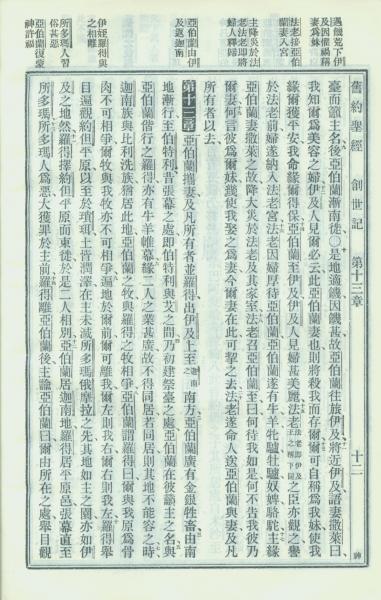 舊約聖經 創世記 第十三章 十二 神
遇饑荒下伊
及因懼禍稱
妻爲妹
法老接亞伯
蘭妻入宮
主降災於法
老法老即將
婦人釋歸
亞伯蘭由伊
及返迦南
伊姪羅得與
之相離
所多瑪人習
俗甚惡
亞伯蘭復蒙
神許福
臺而籲主名後亞伯蘭漸南徙○是地適饑因饑甚故亞伯蘭往旅伊及將近伊及語妻撒萊曰
我知爾爲美容之婦伊及人見爾必云此亞伯蘭妻也則將殺我而存爾爾可自稱爲我妹使我
緣爾獲平安我命緣爾得保亞伯蘭至伊及伊及人見婦甚美麗法老法老即伊及王之稱下同之臣亦觀之譽
於法老前婦遂納入法老宮法老因婦厚待亞伯蘭亞伯蘭遂有牛羊牝驢牡驢奴婢駱駝主緣
亞伯蘭妻撒萊之故降大災於法老及其家室法老召亞伯蘭至曰何待我如是何不告我彼乃
爾妻何言彼爲爾妹幾使我娶之爲妻今爾妻在此可挈之去法老遂命人送亞伯蘭與妻及凡
所有者以去
第十三章 亞伯蘭攜妻及凡所有者並羅得出伊及上至迦南之南方亞伯蘭廣有金銀牲畜由南
地漸行至伯特利昔張幕之處即伯特利與艾之間乃初建祭臺之處亞伯蘭在彼籲主之名與
亞伯蘭偕行之羅得亦有牛羊帷幕緣二人之業甚廣故不得同居若同居則其地不能容之時
迦南族與比利洗族猶居此地亞伯蘭之牧與羅得之牧相爭亞伯蘭謂羅得曰爾與我原爲骨
肉不可相爭爾牧與我牧亦不可相爭遍地於爾前爾可離我爾左則我右爾右則我左羅得舉
目遍觀約但平原以至於瑣珥土皆潤澤在主未滅所多瑪俄摩拉之先其地如主之囿亦如伊
及之地然羅得擇約但平原而東徙於是二人相別亞伯蘭居迦南地羅得居平原邑張幕直至
所多瑪所多瑪人爲惡大獲罪於主前羅得離亞伯蘭後主諭亞伯蘭曰爾由所在之處舉目觀